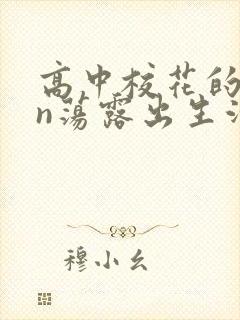 高中校花的
n荡露出生活
穆小幺